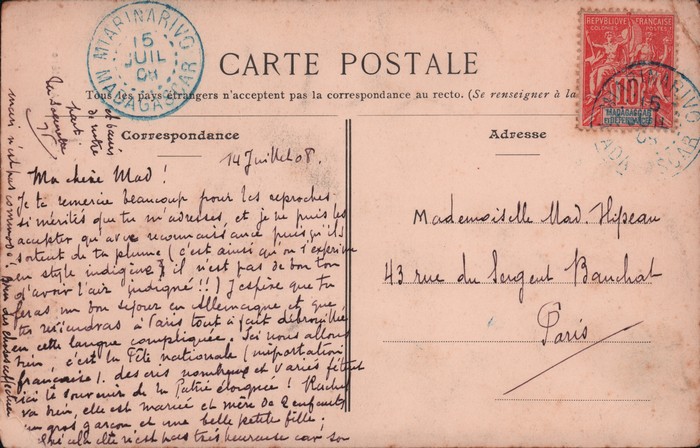 MIARINARIVO
15
JUIL
08
MADAGASCAR
CARTE POSTALE
Tous les pays étrangers n'acceptent pas la correspondance au recto. (Se renseigner à la
RÉPUBLIQUE FRANÇAISE
COLONIES POSTES
10
MADAGASCAR
ET DÉPENDANCES
Correspondance
14 Juillet 08.
Ma chère Mad !
Je te remercie beaucoup pour les reproches
si mérités que tu m'adresses, et je ne puis les
accepter qu'avec reconnaissance puisqu'ils
sortent de ta plume (c'est ainsi qu'on s'exprime
en style indigène, il n'est pas de bon ton
d'avoir l'air indigné !!) J'espère que tu
feras un bon séjour en Allemagne et que
tu reviendras à Paris tout à fait débrouillée
en cette langue compliquée. Ici nous allons
bien, c'est la Fête nationale (importation
française). des cris nombreux et variés fêtent
ici le souvenir de la Patrie éloignée ! Rachel
va bien, elle est mariée et mère de 2 enfants
un gros garçon et une belle petite fille ;
est pas très heureuse car son
mari n'est pas commode !
Bien des choses
Adresse
Mademoiselle Mad. Hipeau
43 rue du Sergent Bauchat
Paris